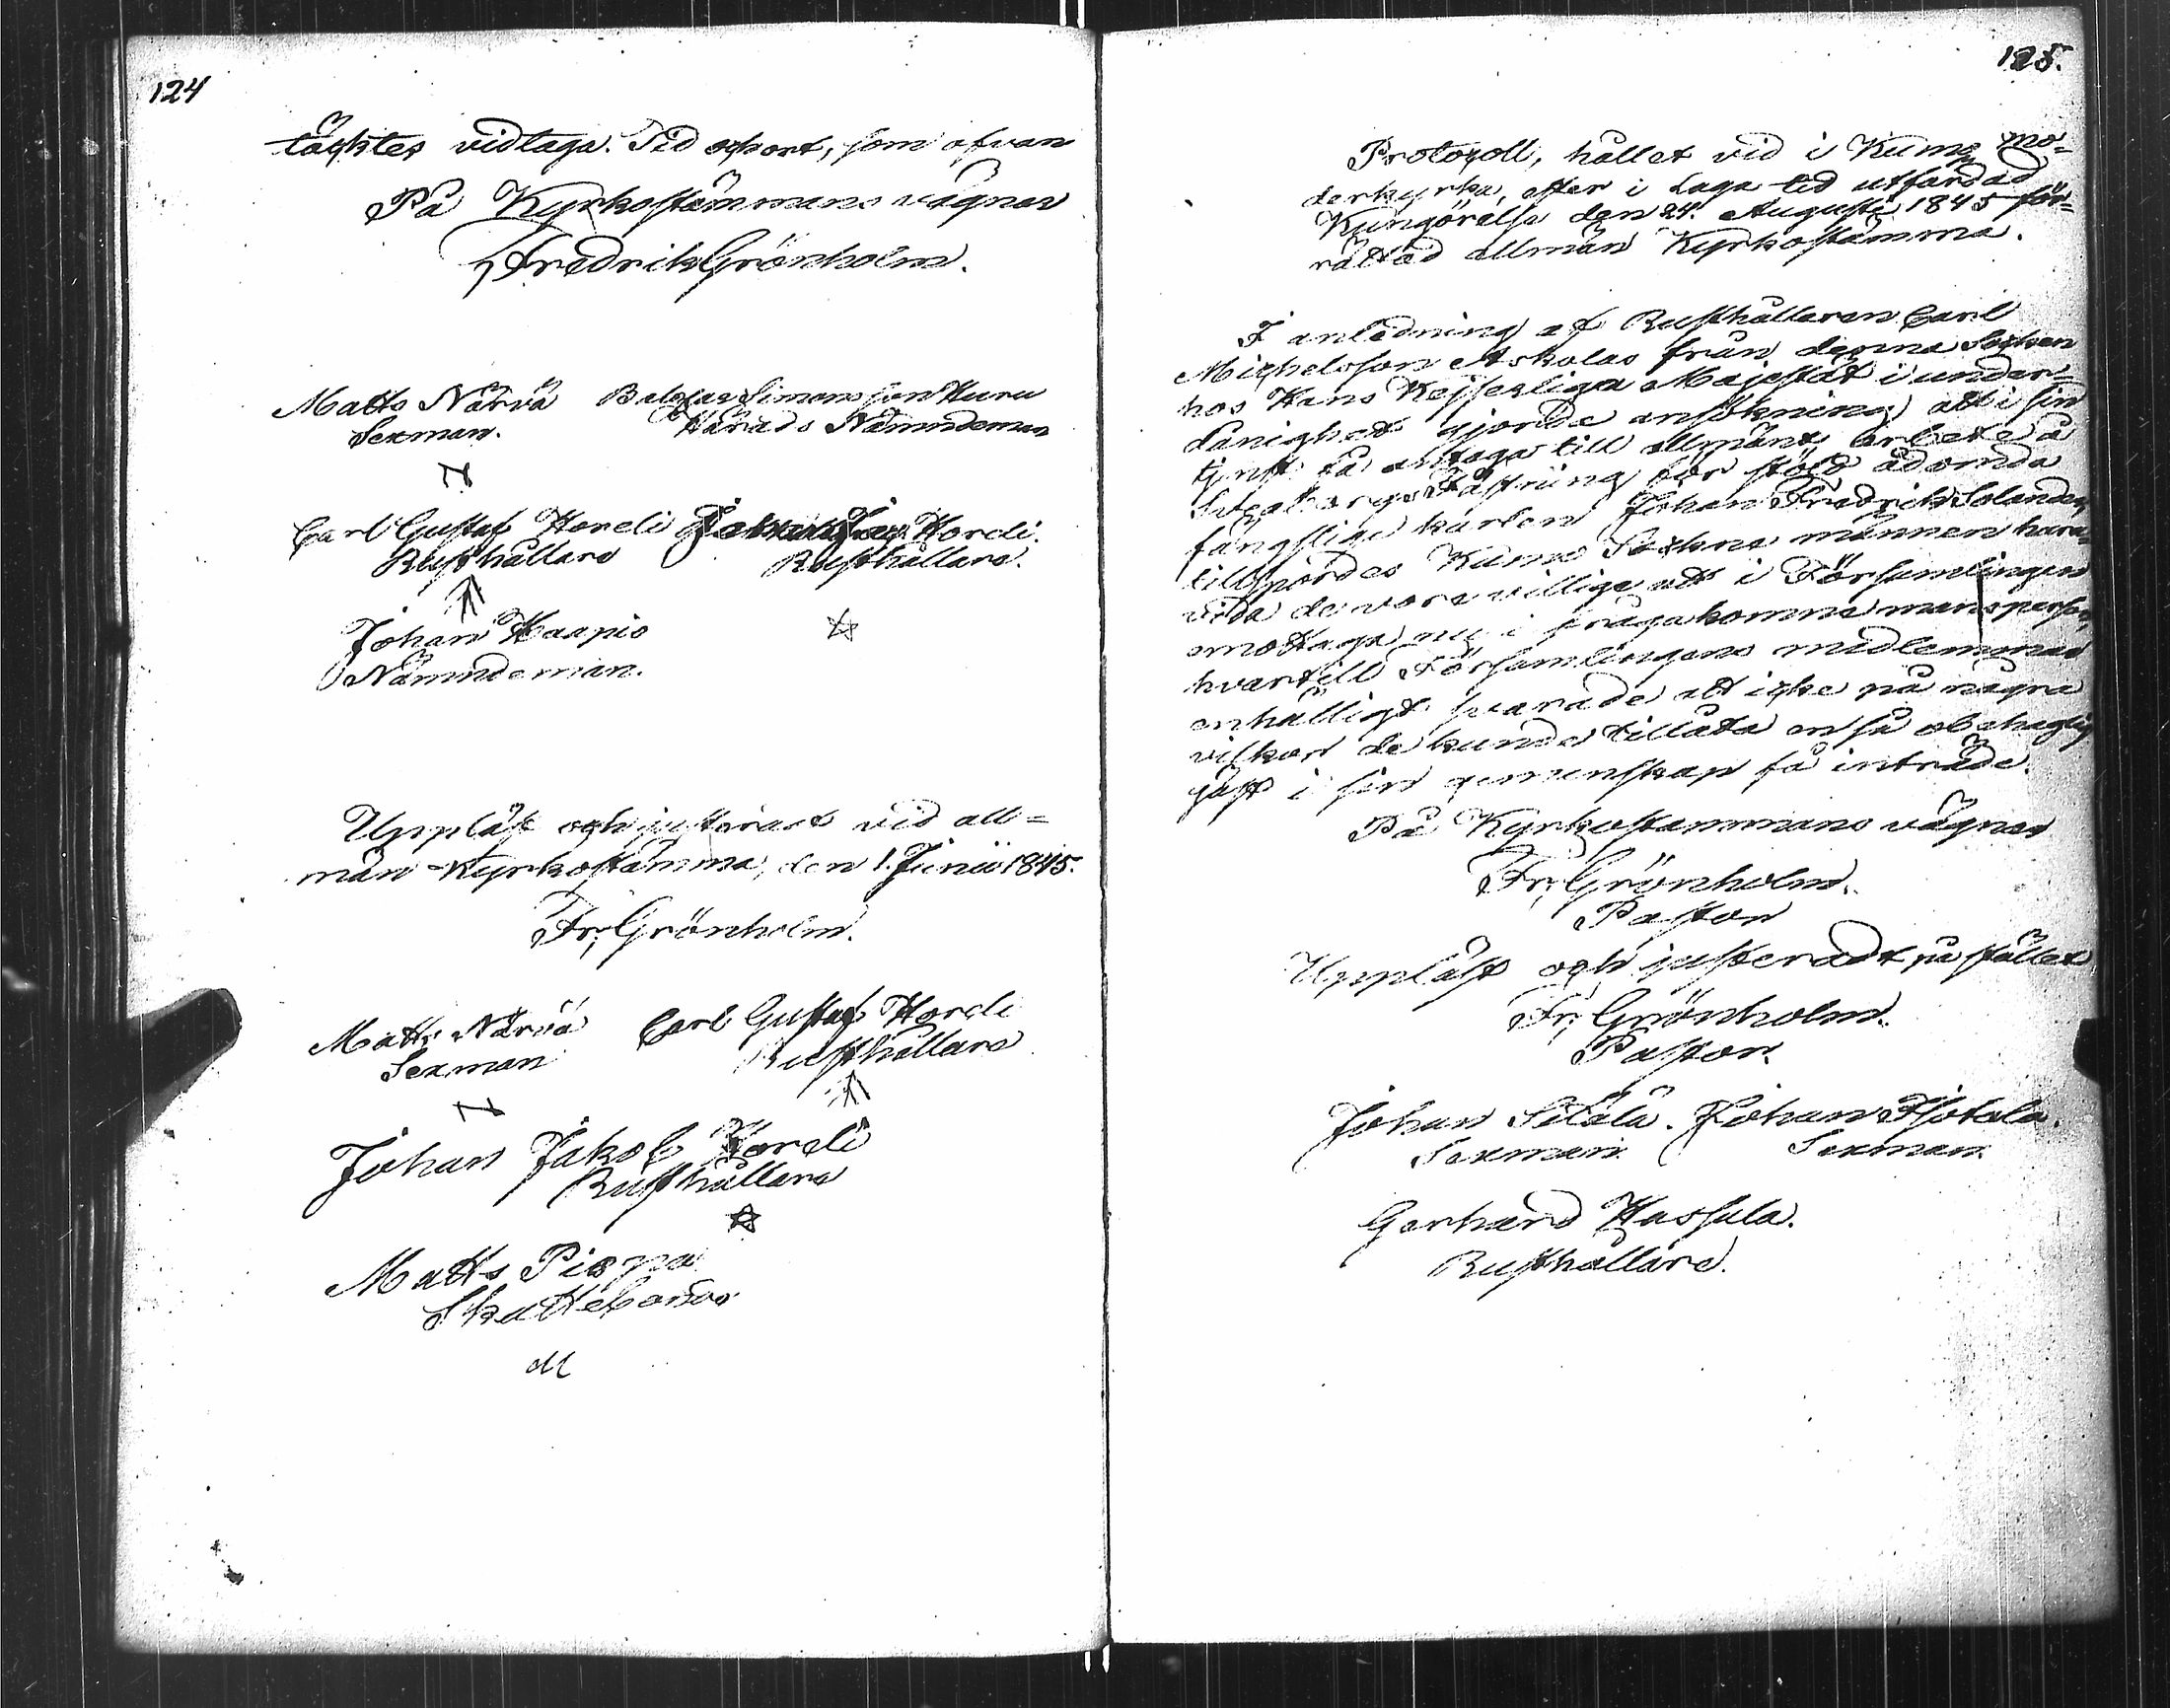 124
täcktes vidtaga. Tid och ort, som ofvan
På Kyrkostämmans vägnar
Fredrik Grönholm.
Matts Närvä Simonsson Huru
Sexman. Härads Nämndeman
N
Carl Gustaf Hordi Hordi.
Rusthållare Rusthållare.
Johan Haapio
Nämndeman.
Uppläst och justeradt vid all=
män Kyrkostämma, den 1. Junii 1845.
Fr; Grönholm.
Matts Närvä Carl Gustaf Hordi
Sexman Rusthållare
N
Johan Jakob Hordi
Rusthållare
Matts Piopa
Skattebonde
M
125.
Protocoll, hållet vid i Kumo mo=
derkyrka, efter i laga tid utfärdad
Kungörelse den 24. Augusti 1845 för=
rättad allmän Kyrkostämma.
I anledning af Rusthållaren Carl
Michelsson Askolas från denna Socken
hos Hans Kejserliga Majestät i under=
dånighet gjorde ansökning att i sin
tjenst få antaga till allmänt arbete å
Sveaborgs Fästning för stöld ådömda
fängslige karlen Johan Fredrik Solander,
tillspordes Kumo Sockne männen huru=
vida de voro villige att i Församlingen
emottaga nu i fråga komne mansperson,
hvartill Församlingens medlemmar
enhälligt svarade att icke på några
vilkor de kunde tillåta en så obehaglig
gäst i sin gemenskap få inträde.
På Kyrkostämmans vägnar
Fr; Grönholm.
Pastor
Uppläst och justeradt på stället
Fr; Grönholm.
Pastor.
Johan Silala. Johan Isotalo.
Sexman. Sexman.
Gerhard Hassala.
Rusthållare.